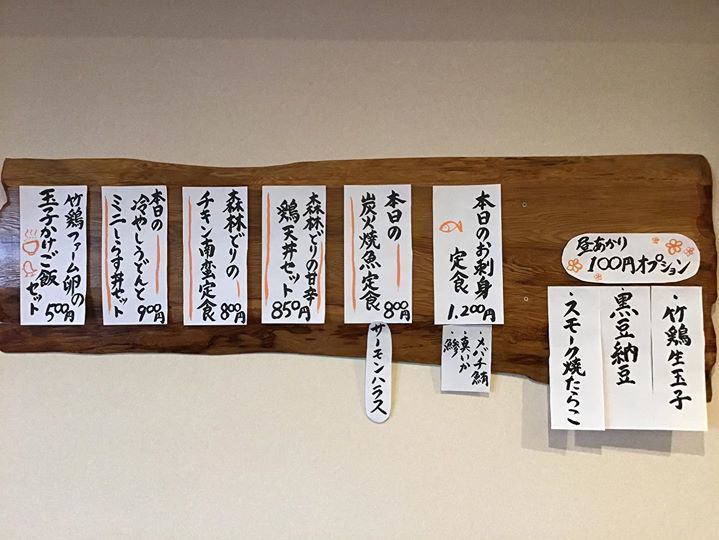 本日のお刺身
定食
1.200円
・メバチ鮪
・真いか
・鰺
本日の
炭火焼魚定食
800円
サーモンハラス
森林どりの甘辛
鶏天丼セット
850円
森林どりの
チキン南蛮定食
800円
本日の
冷やしうどんと
ミニしらす丼セット
900円
竹鶏ファーム卵の
玉子かけご飯
セット
500円
昼あかり
100円オプション
・竹鶏生玉子
・黒豆納豆
・スモーク焼たらこ